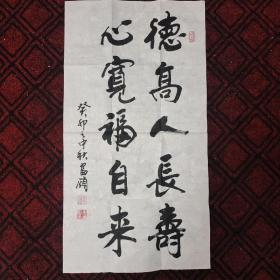 德高人長壽
心寬福自来
癸卯之中秋